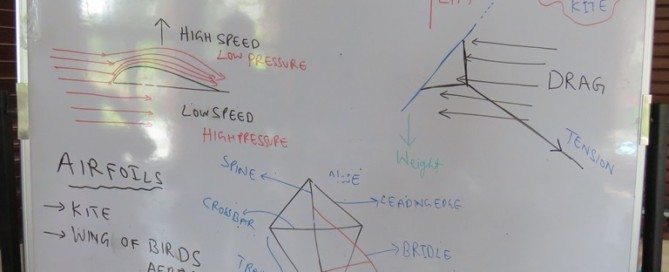 LIFT
KITE
HIGH SPEED
LOW PRESSURE
DRAG
LOW SPEED
HIGH PRESSURE
TENSION
Weight
AIRFOILS
SPINE
NOSE
LEADING EDGE
→ KITE
CROSSBAR
→ WING OF BIRDS
BRIDLE